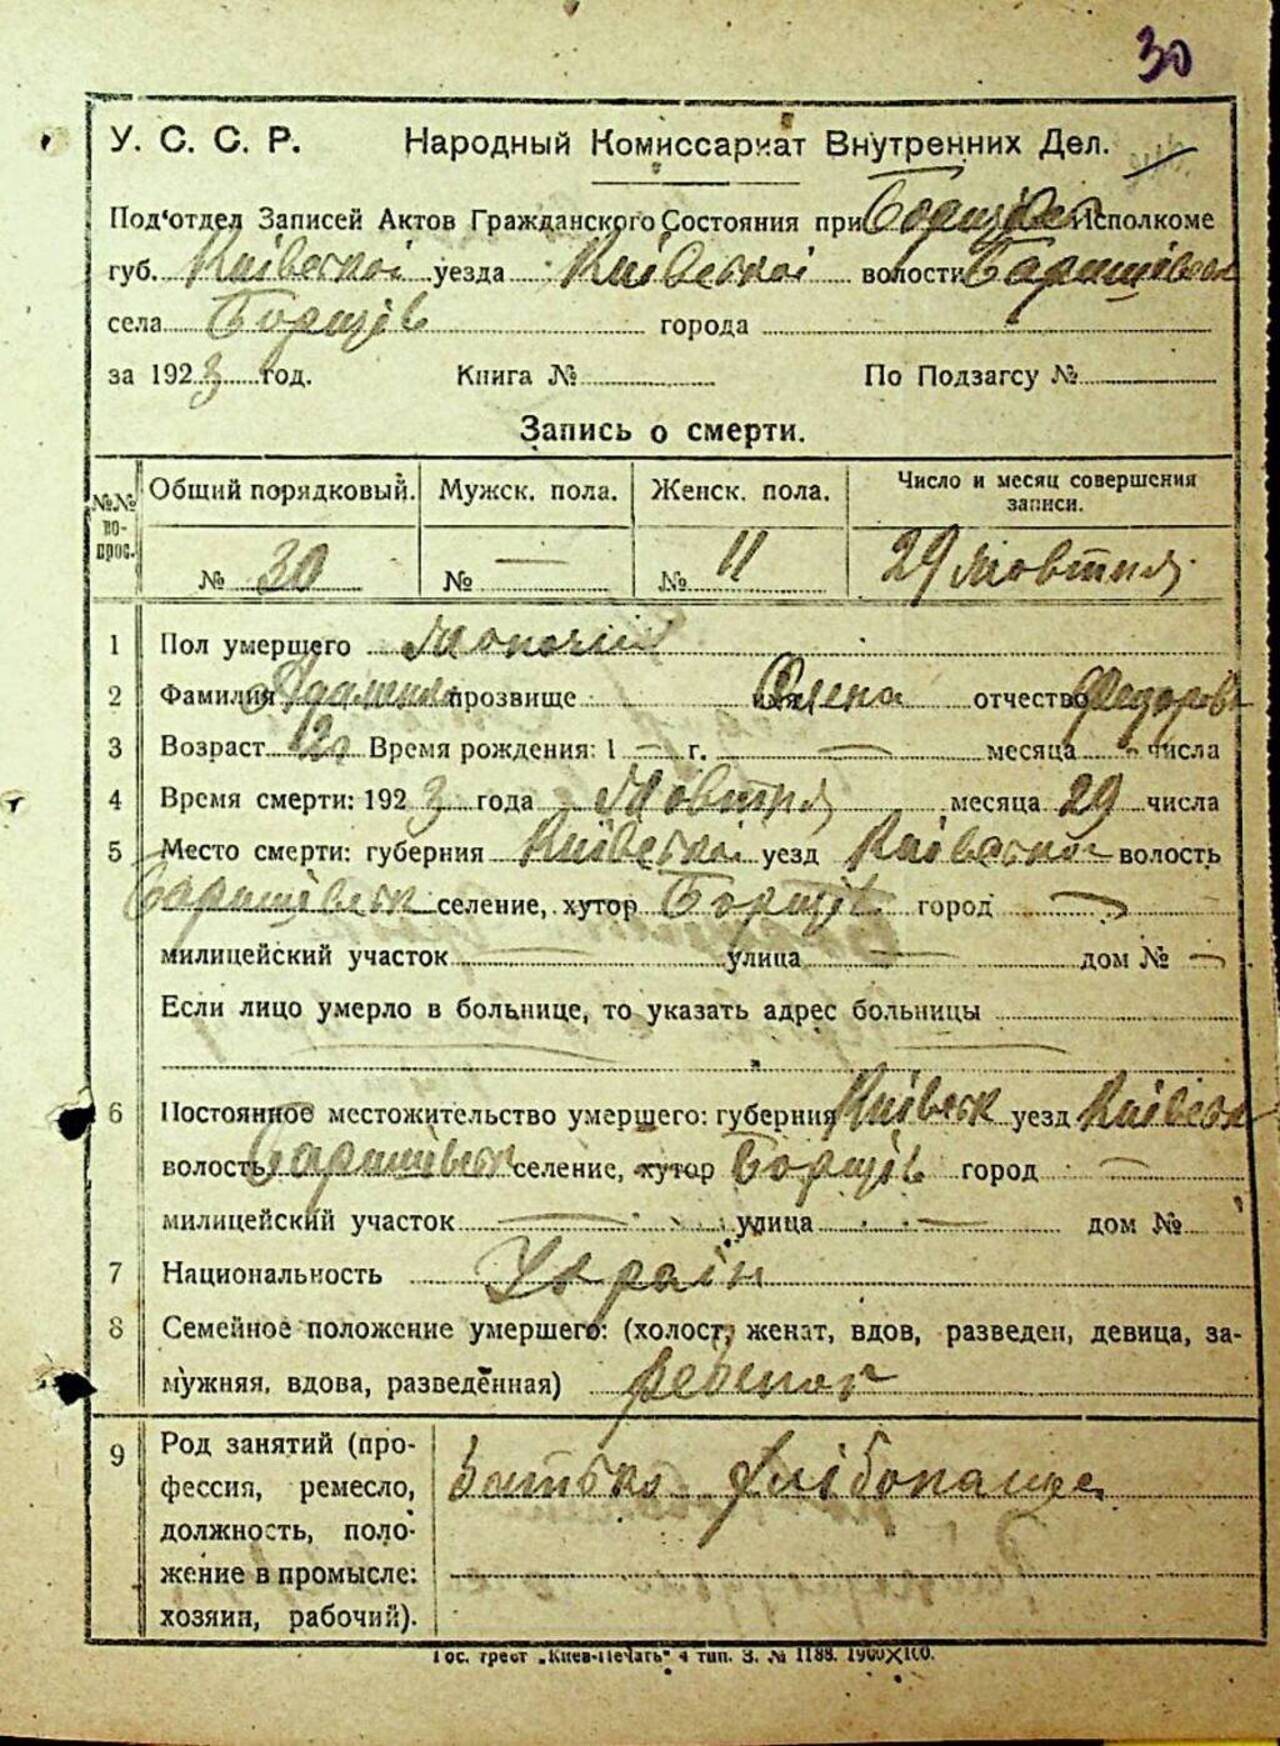 30
У. С. С. Р. Народный Комиссариат Внутренних Дел.
Под'отдел Записей Актов Гражданского Состояния при Исполкоме
губ. Київської уезда Київської волости Баришівськ
села Борщів города
за 1923 год. Книга № По Подзагсу №
Запись о смерти.
№№ во-прос. Общий порядковый. Мужск. пола. Женск. пола. Число и месяц совершения записи.
№ 30 № — № 11 29 Жовтня
1 Пол умершего Жоночий
2 Фамилия прозвище имя Олена отчество Федоров
3 Возраст 12 Время рождения: 1 — г. — месяца числа
4 Время смерти: 1923 года Жовтня месяца 29 числа
5 Место смерти: губерния Київської уезд Київської волость
Баришівськ селение, хутор Борщів город —
милицейский участок — улица — дом № —
Если лицо умерло в больнице, то указать адрес больницы
6 Постоянное местожительство умершего: губерния Київськ уезд Київськ
волость Баришівськ селение, хутор Борщів город —
милицейский участок — улица — дом №
7 Национальность Україн
8 Семейное положение умершего: (холост, женат, вдов, разведен, девица, за-
мужняя, вдова, разведённая) ребенок
9 Род занятий (про-
фессия, ремесло, Батько хлібопашец
должность, поло-
жение в промысле:
хозяин, рабочий).
Гос. трест „Киев-Печать" 4 тип. З. № 1188.